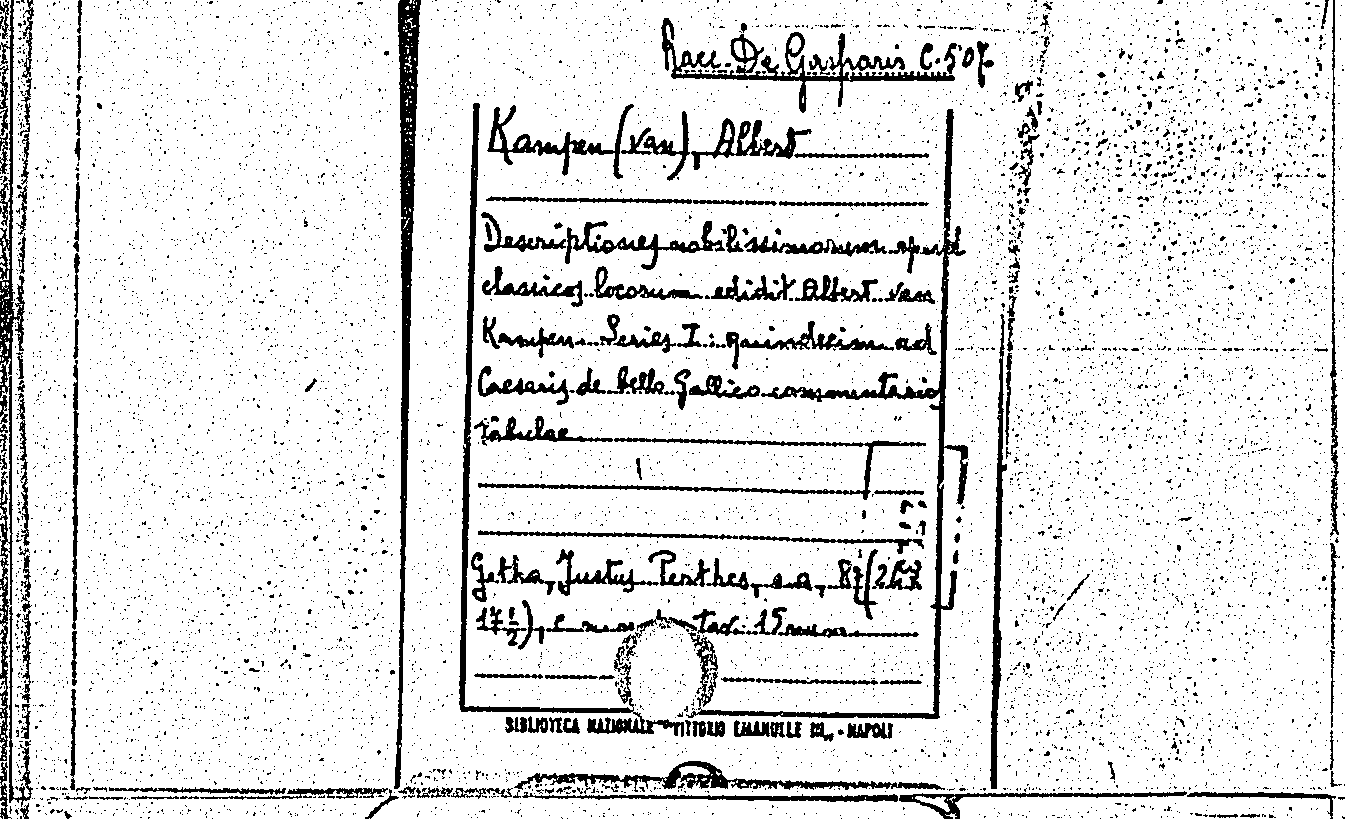 Racc. De Gasparis C. 507
Kampen (van), Albert
Descriptiones nobilissimorum apud
classicos locorum edidit Albert van
Kampen. Series I: quindecim ad
Caesaris de bello Gallico commentarios
tabulae
Gotha, Justus Perthes, s. a., 8º (
17 1/2), tav. 15 num.
BIBLIOTECA NAZIONALE "VITTORIO EMANUELE III„ - NAPOLI